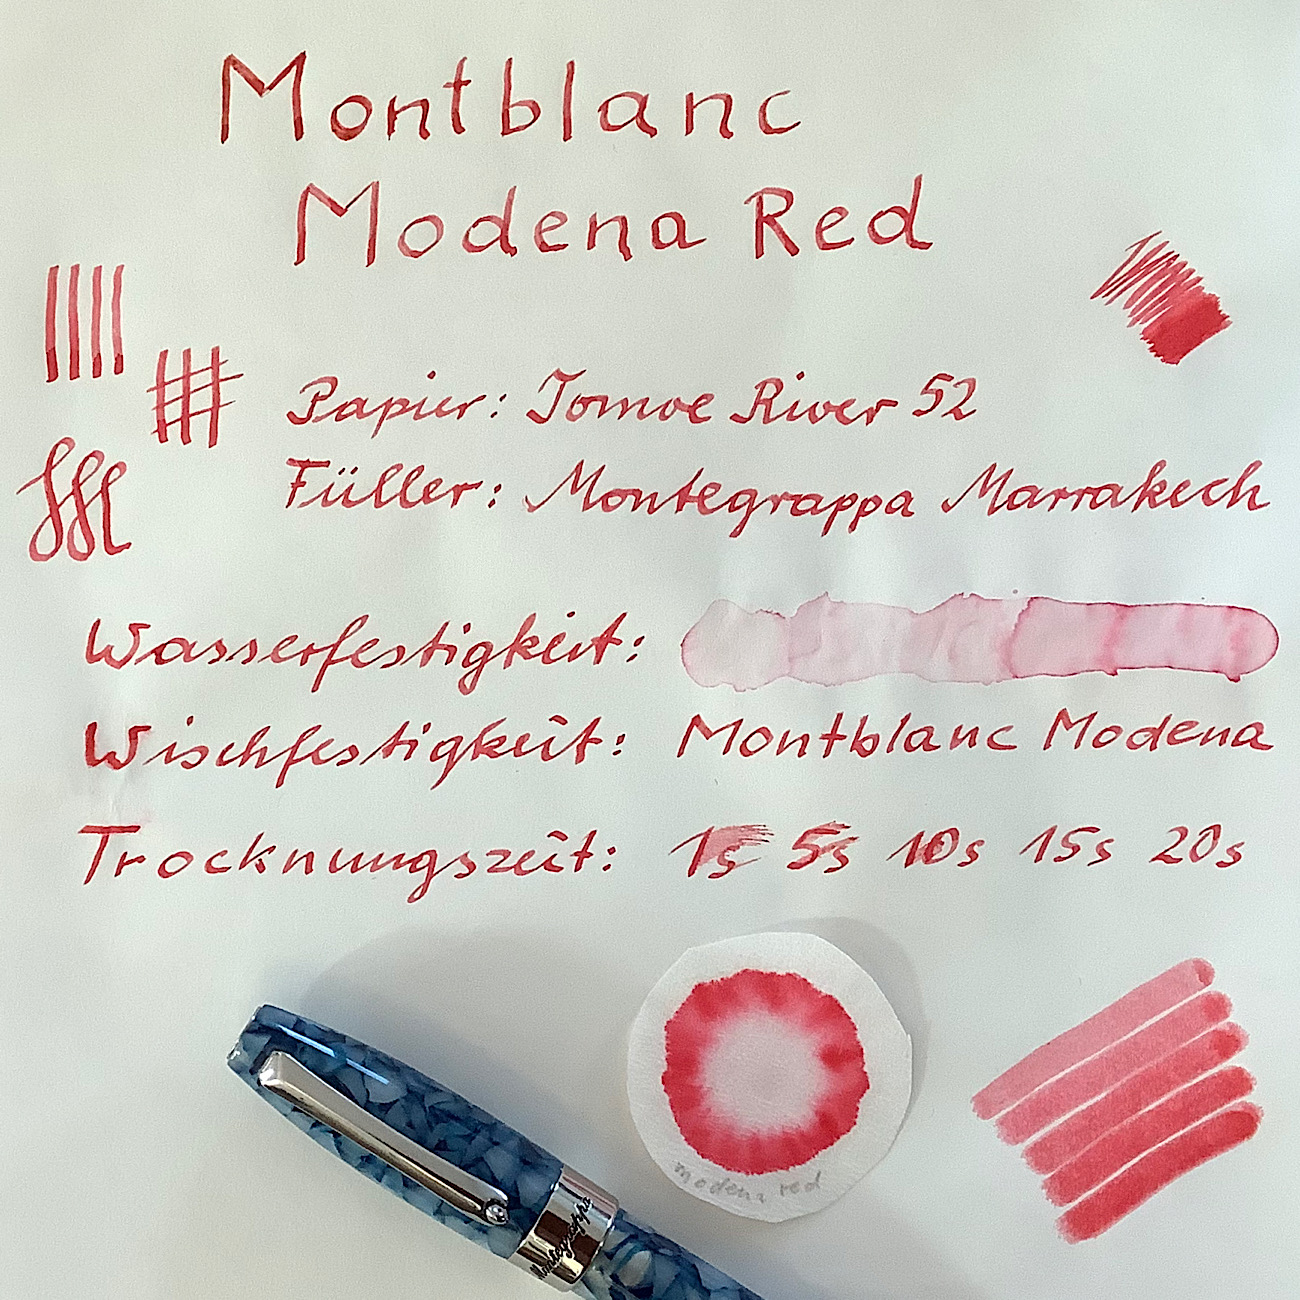 Montblanc
Modena Red
Papier: Tomoe River 52
Füller: Montegrappa Marrakech
Wasserfestigkeit:
Wischfestigkeit: Montblanc Modena
Trocknungszeit: 1s 5s 10s 15s 20s
modena red
Montegrappa